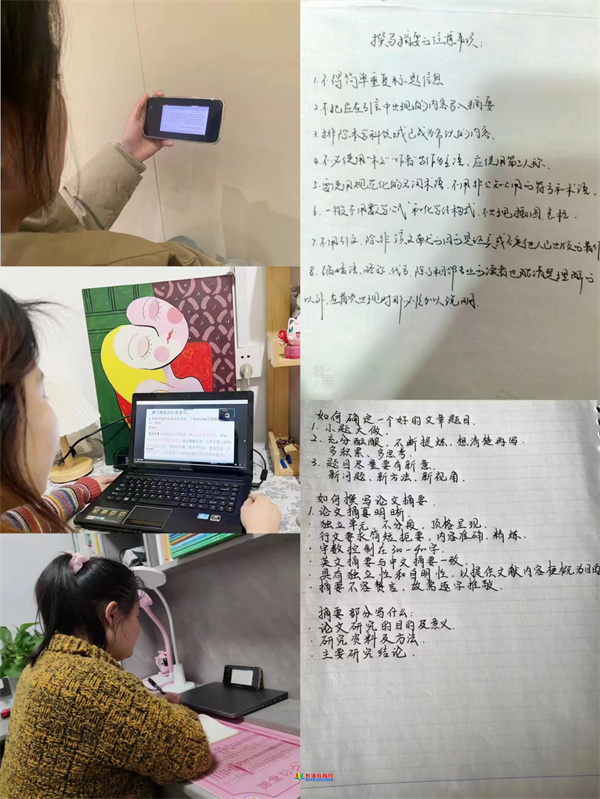 撰写摘要的注意事项:
1.不得简单重复标题信息
2.不把应在引言中出现的内容写入摘要
3.排除本学科领域已成为常识的内容.
4.不必使用“本文”“作者”等作为主语,应使用第三人称.
5.要使用规范化的名词术语,不用非公知公用的符号和术语.
6.一般不用数学公式和化学结构式,不出现插图,表格
7.不用引文,除非该文献
8.缩略语、略称、代号,除了相邻专业的读者也能清楚理解的
以外,在首次出现时都必须加以说明.
如何确定一个好的文章题目.
1.小题大做
2.充分酝酿,不断提炼,想清楚再写
多积累,多思考
3.题目尽量要有新意.
新问题、新方法、新视角.
如何撰写论文摘要
1.论文摘要明晰.
·独立单元,不分段,顶格呈现.
·行文要求简短扼要,内容准确、精炼.
·字数控制在300-400字.
·英文摘要与中文摘要一致.
·具有独立性和自明性,以提供文献内容梗概为目的
·摘要不容赘言,故需逐字推敲.
摘要部分写什么:
·论文研究的目的及意义.
·研究资料及方法.
·主要研究结论.